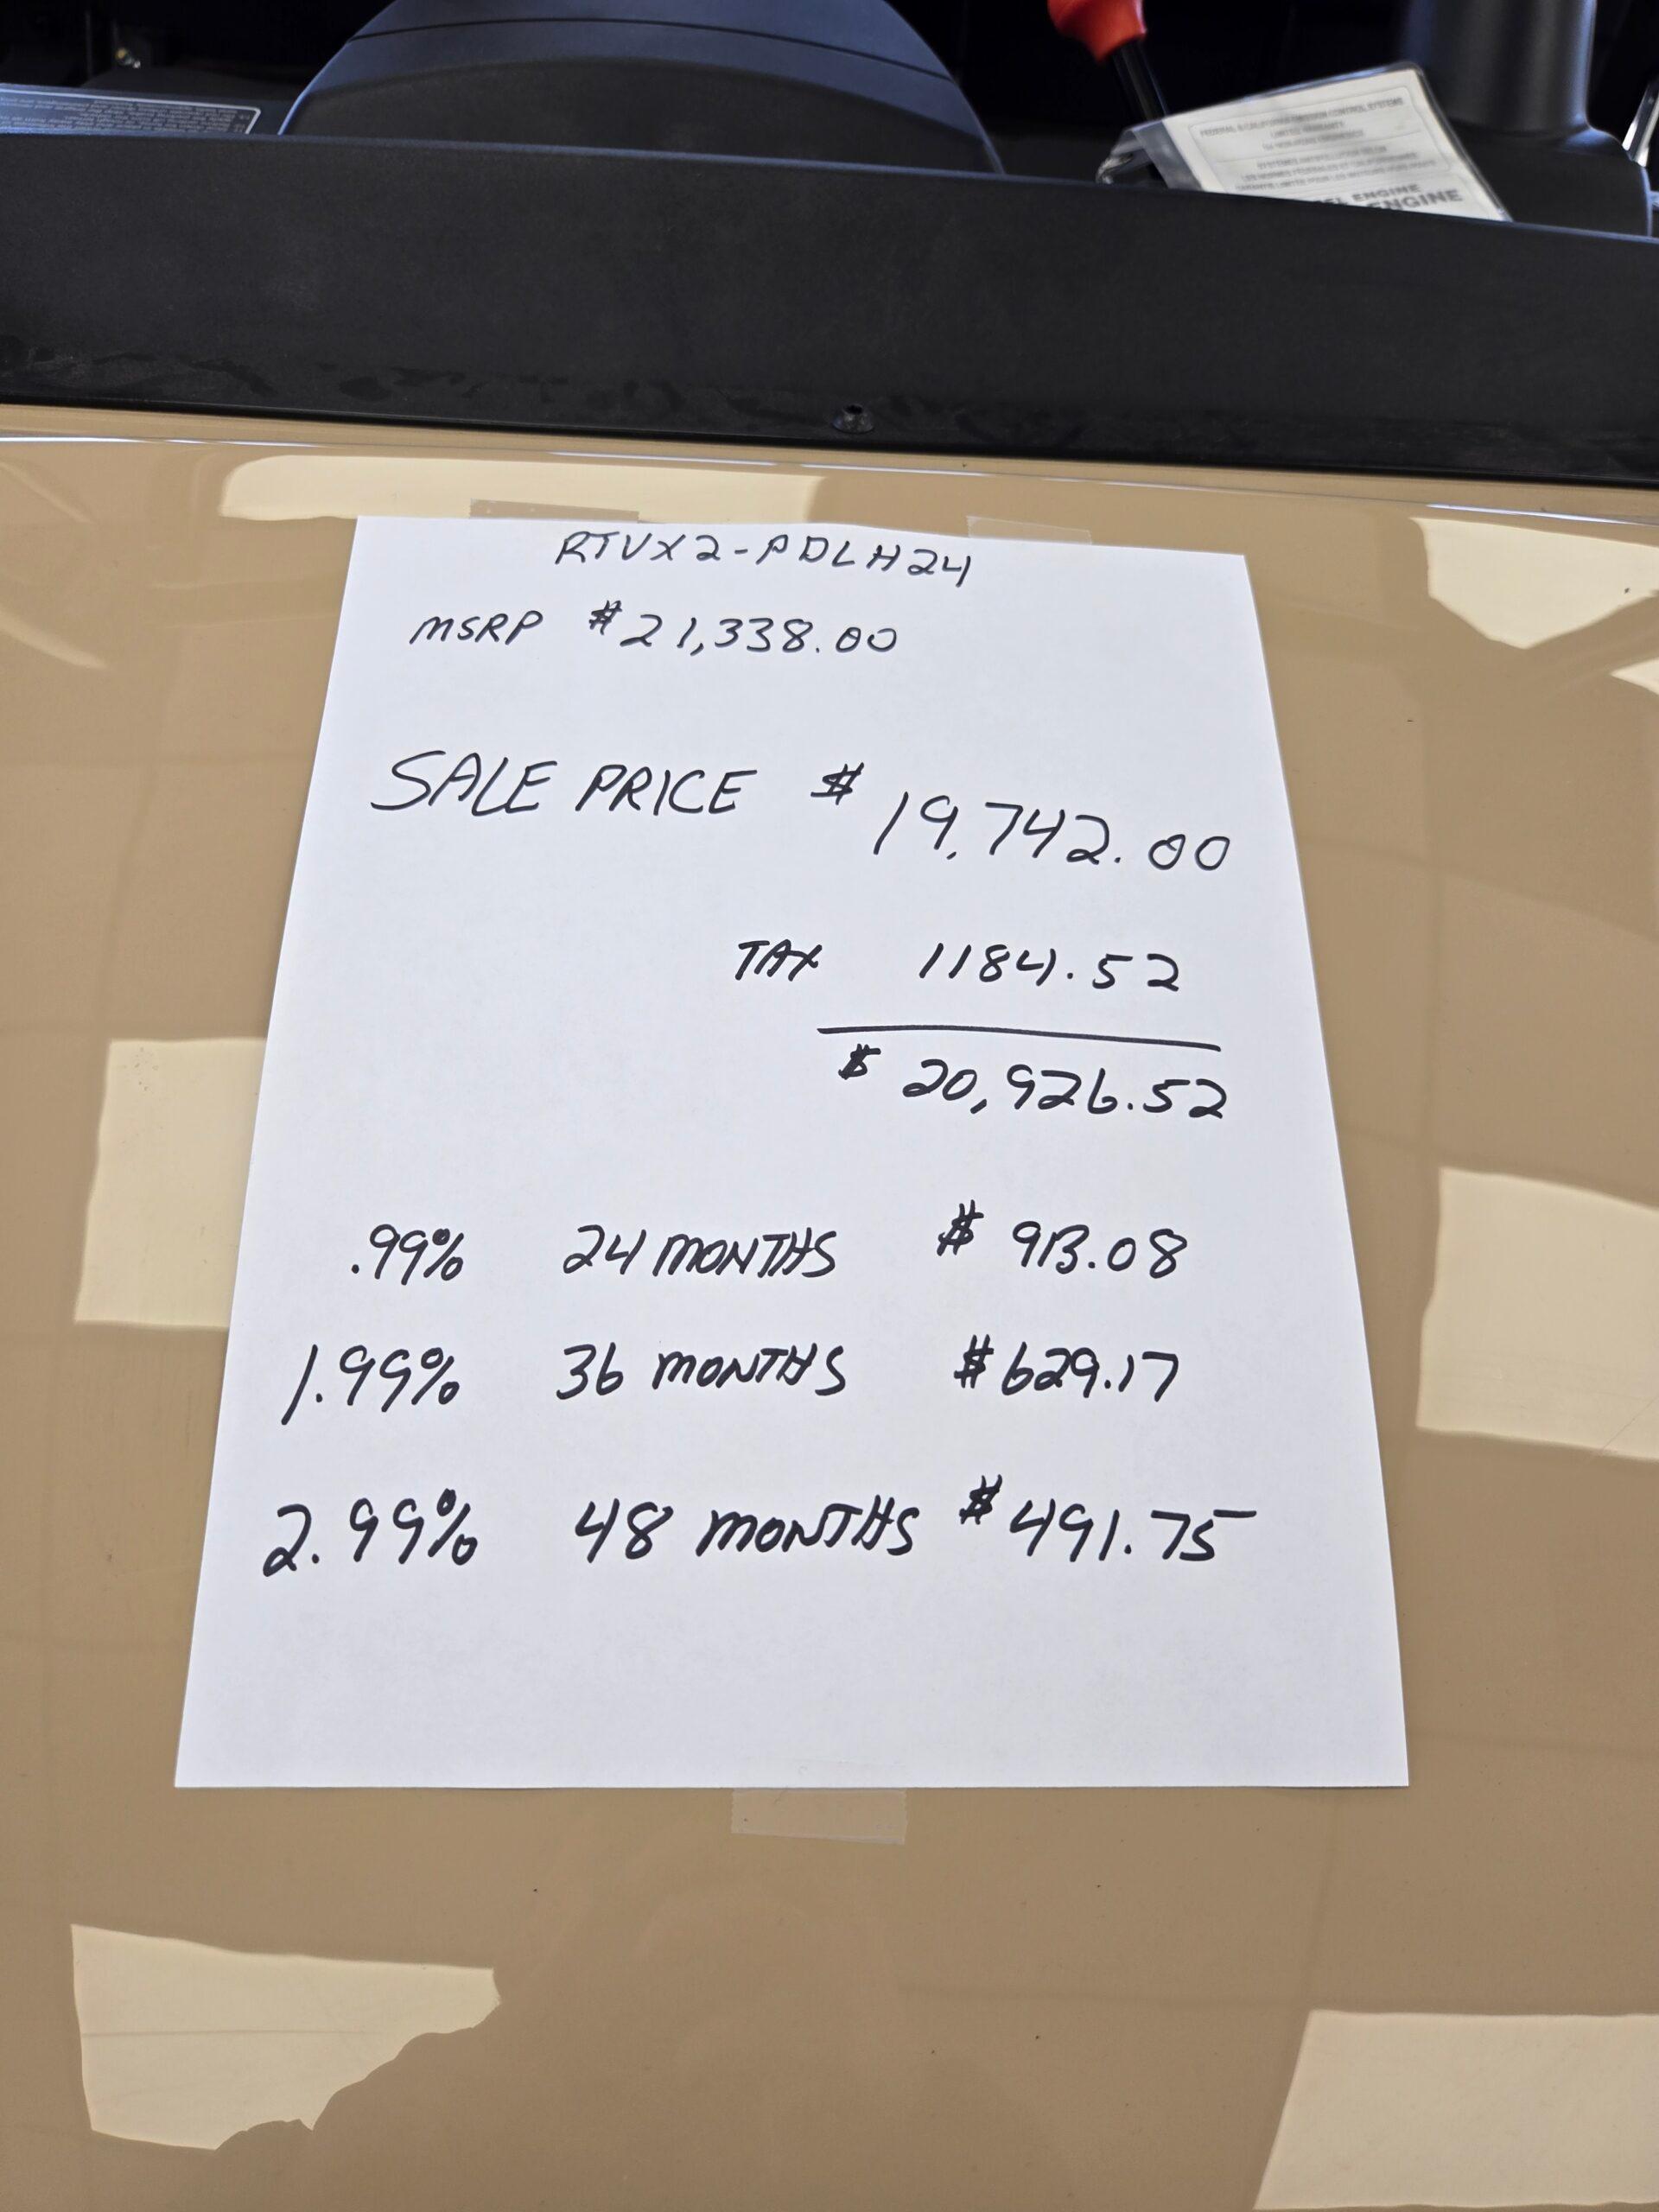 FEDERAL & CALIFORNIA EMISSION CONTROL SYSTEMS
LIMITED WARRANTY
ENGINE
ENGINE
RTVX2-PDLH24
MSRP $21,338.00
SALE PRICE $19,742.00
TAX 1184.52
$ 20,926.52
.99% 24 MONTHS $ 913.08
1.99% 36 MONTHS $629.17
2.99% 48 MONTHS $491.75